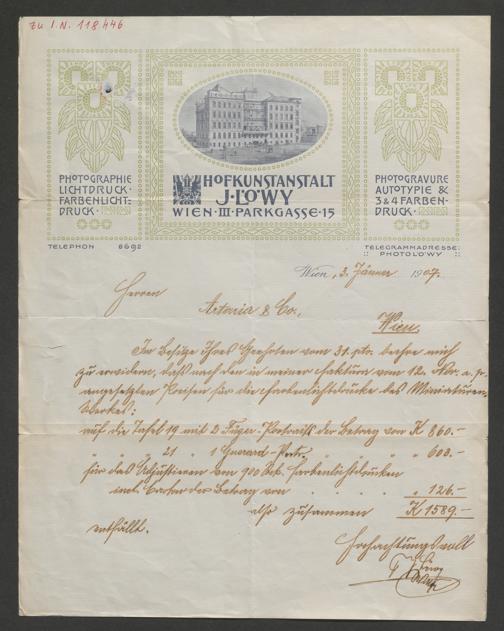 zu I.N. 118446
PHOTOGRAPHIE
LICHTDRUCK·
FARBENLICHT=
DRUCK·
HOFKUNSTANSTALT
J·LÖWY
WIEN·III·PARKGASSE·15
PHOTOGRAVURE
AUTOTYPIE &
3 & 4 FARBEN-
DRUCK·
TELEPHON 6692
TELEGRAMMADRESSE:
:: PHOTOLÖWY ::
Wien, 3. Jänner 1907.
Herren
Artaria & Co.,
Wien.
Im Besitze Ihres Geehrten vom 31. pto. beehre mich
zu erwidern, daß nach den in meiner Faktura vom 12. a. p.
angesetzten Preisen für die Farbenlichtdrucke des Miniaturen-
Werkes:
auf die Tafel 19 mit 2 Füger-Portraits der Betrag von K 860.-
" " " 21 " 1 " " " "
für das Adjustieren von 900 Farbenlichtdrucken
incl. der Betrag von " 126.-
also zusammen K 1589.-
entfällt.
Hochachtungsvoll